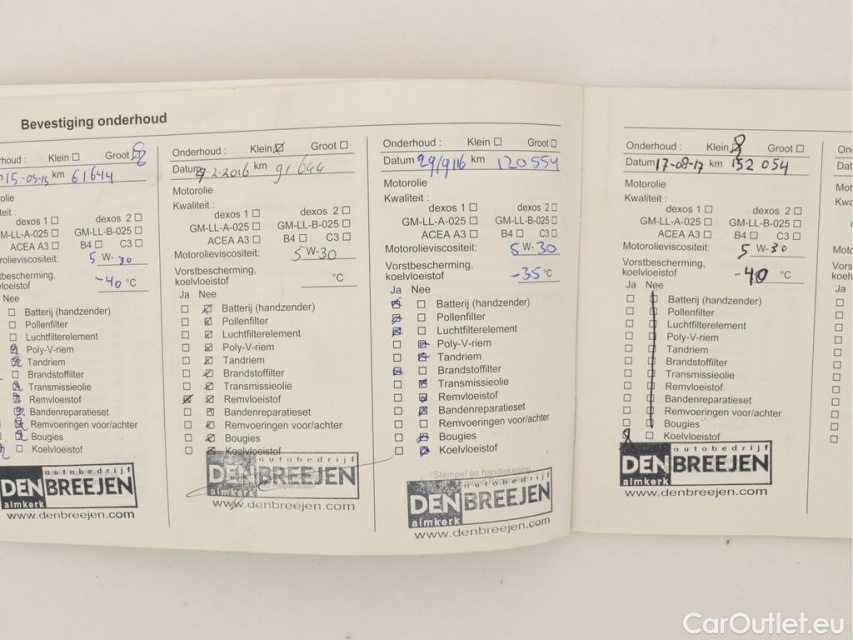 Bevestiging onderhoud
houd : Klein Groot
15-05-15 km 61644
olie
teit :
dexos 1 dexos 2
M-LL-A-025 GM-LL-B-025
ACEA A3 B4 C3
olieviscositeit: 5 W- 30
tbescherming,
vloeistof -40 °C
Nee
Batterij (handzender)
Pollenfilter
Luchtfilterelement
Poly-V-riem
Tandriem
Brandstoffilter
Transmissieolie
Remvloeistof
Bandenreparatieset
Remvoeringen voor/achter
Bougies
Koelvloeistof
autobedrijf
DEN BREEJEN
almkerk
www.denbreejen.com
Onderhoud : Klein Groot
Datum -2-2016 km 91644
Motorolie
Kwaliteit :
dexos 1 dexos 2
GM-LL-A-025 GM-LL-B-025
ACEA A3 B4 C3
Motorolieviscositeit: 5 W-30
Vorstbescherming,
koelvloeistof °C
Ja Nee
Batterij (handzender)
Pollenfilter
Luchtfilterelement
Poly-V-riem
Tandriem
Brandstoffilter
Transmissieolie
Remvloeistof
Bandenreparatieset
Remvoeringen voor/achter
Bougies
Koelvloeistof
autobedrijf
DEN BREEJEN
almkerk
www.denbreejen.com
Onderhoud : Klein Groot
Datum 29/9/16 km 120554
Motorolie
Kwaliteit :
dexos 1 dexos 2
GM-LL-A-025 GM-LL-B-025
ACEA A3 B4 C3
Motorolieviscositeit: 5 W-30
Vorstbescherming,
koelvloeistof -35 °C
Ja Nee
Batterij (handzender)
Pollenfilter
Luchtfilterelement
Poly-V-riem
Tandriem
Brandstoffilter
Transmissieolie
Remvloeistof
Bandenreparatieset
Remvoeringen voor/achter
Bougies
Koelvloeistof
Stempel en handtekening
autobedrijf
DEN BREEJEN
almkerk
www.denbreejen.com
Onderhoud : Klein Groot
Datum 17-08-17 km 152 054
Motorolie
Kwaliteit :
dexos 1 dexos 2
GM-LL-A-025 GM-LL-B-025
ACEA A3 B4 C3
Motorolieviscositeit: 5 W-30
Vorstbescherming,
koelvloeistof -40 °C
Ja Nee
Batterij (handzender)
Pollenfilter
Luchtfilterelement
Poly-V-riem
Tandriem
Brandstoffilter
Transmissieolie
Remvloeistof
Bandenreparatieset
Remvoeringen voor/achter
Bougies
Koelvloeistof
autobedrijf
DEN BREEJEN
almkerk
www.denbreejen.com
On
Dat
Mot
Kwa
Mot
Vors
koel
Ja
CarOutlet.eu